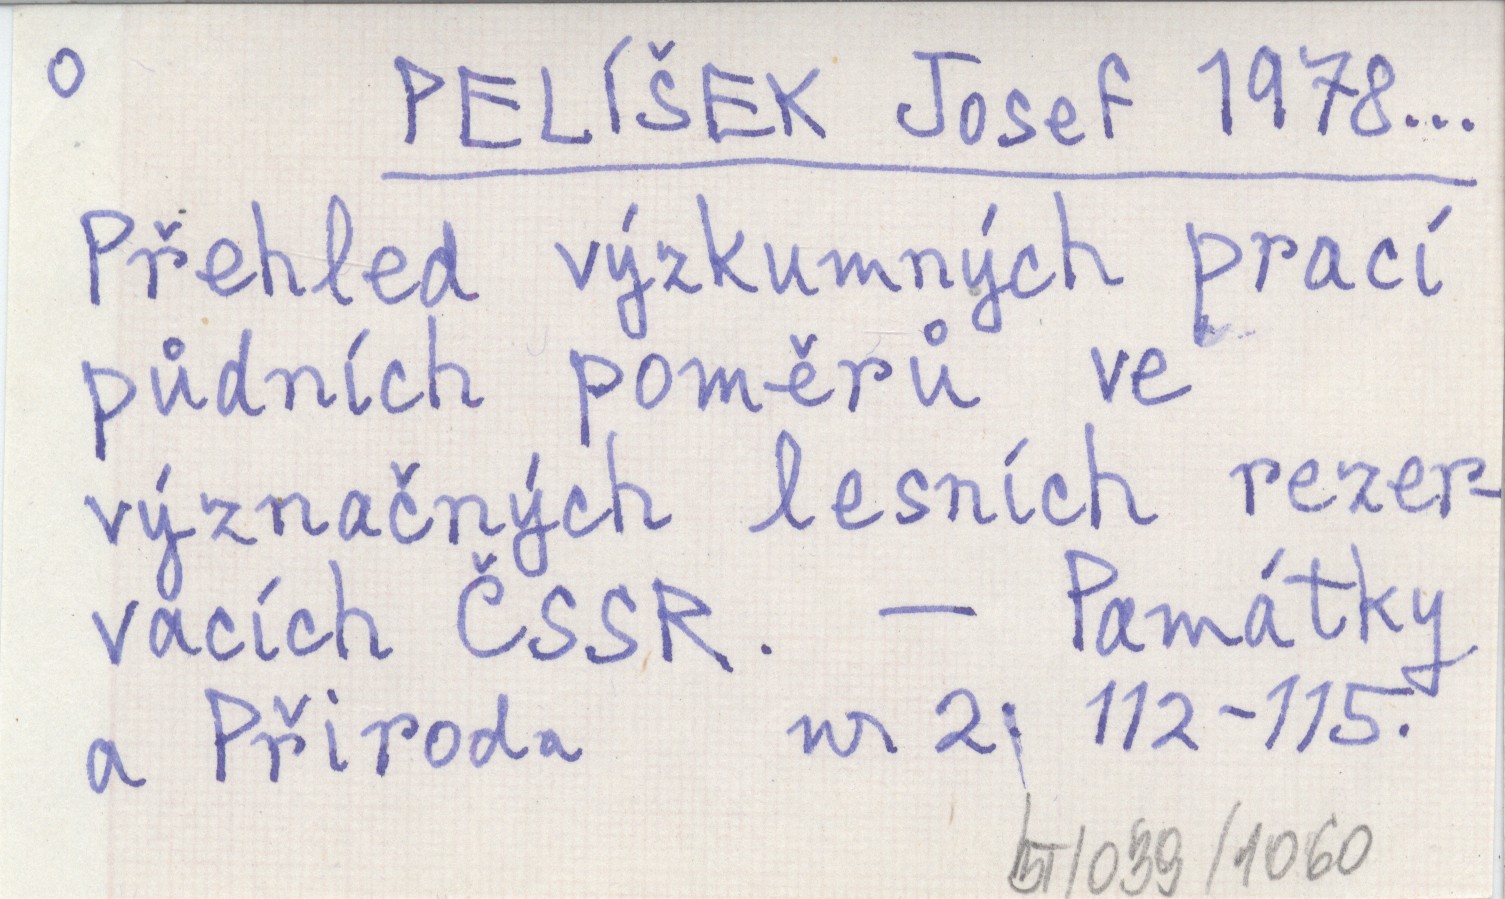 o PELÍŠEK Josef 1978...
Přehled výzkumných prací
půdních poměrů ve
význačných lesních rezer-
vacích ČSSR. — Památky
a Příroda nr 2: 112-115.
/039/1060